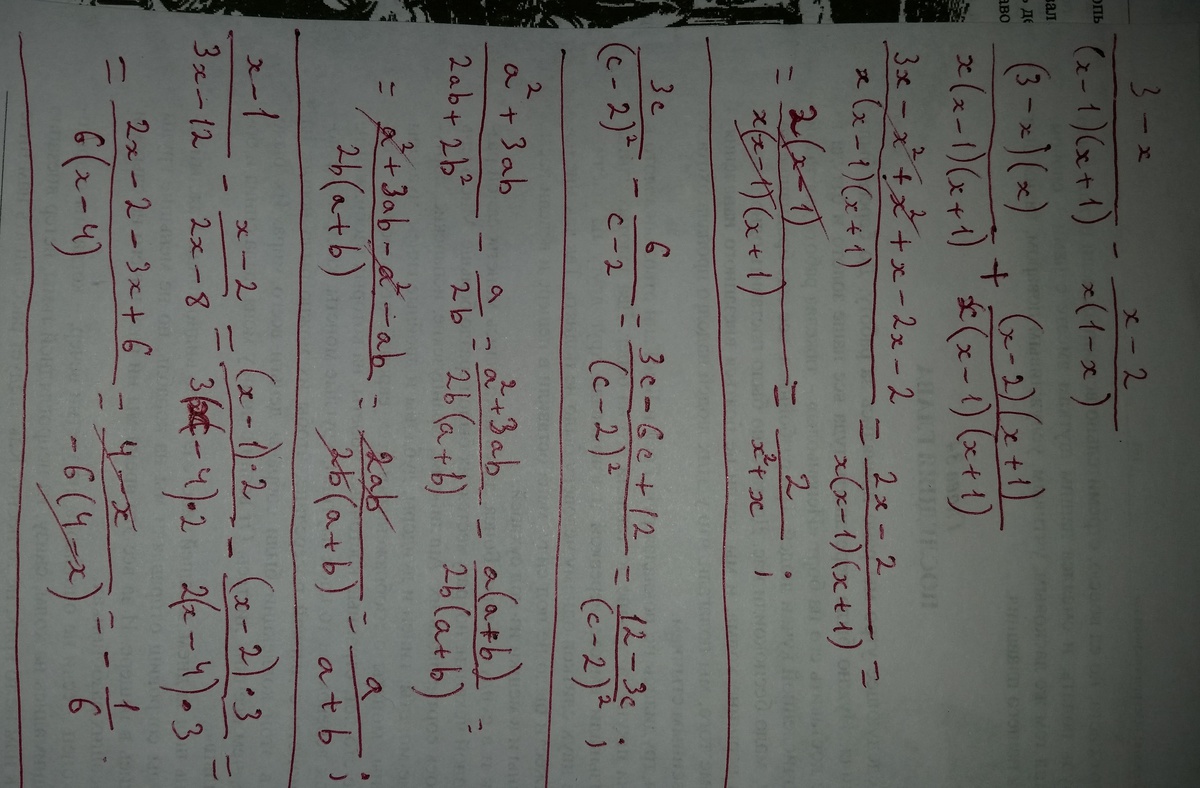 опь
нал
ь де
аво
(3 - x)/((x-1)(x+1)) - (x-2)/(x(1-x))
((3-x)(x))/(x(x-1)(x+1)) + ((x-2)(x+1))/(x(x-1)(x+1))
(3x - x² + x² + x - 2x - 2)/(x(x-1)(x+1)) = (2x - 2)/(x(x-1)(x+1)) =
= (2(x-1))/(x(x-1)(x+1)) = 2/(x²+x) ;
3c/((c-2)²) - 6/(c-2) = (3c - 6c + 12)/((c-2)²) = (12 - 3c)/((c-2)²) ;
(a² + 3ab)/(2ab + 2b²) - a/(2b) = (a² + 3ab)/(2b(a+b)) - (a(a+b))/(2b(a+b)) =
= (a² + 3ab - a² - ab)/(2b(a+b)) = (2ab)/(2b(a+b)) = a/(a+b) ;
(x-1)/(3x-12) - (x-2)/(2x-8) = ((x-1)·2)/(3(x-4)·2) - ((x-2)·3)/(2(x-4)·3) =
= (2x - 2 - 3x + 6)/(6(x-4)) = (4-x)/(-6(4-x)) = - 1/6 .